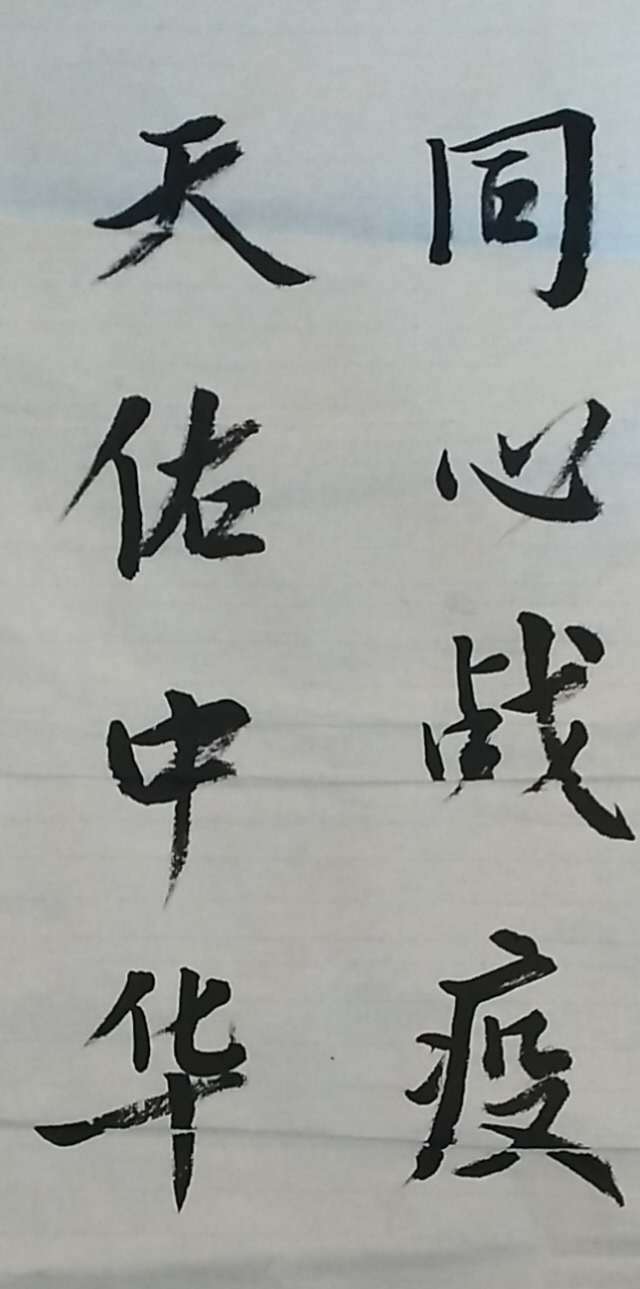 同心战疫
天佑中华